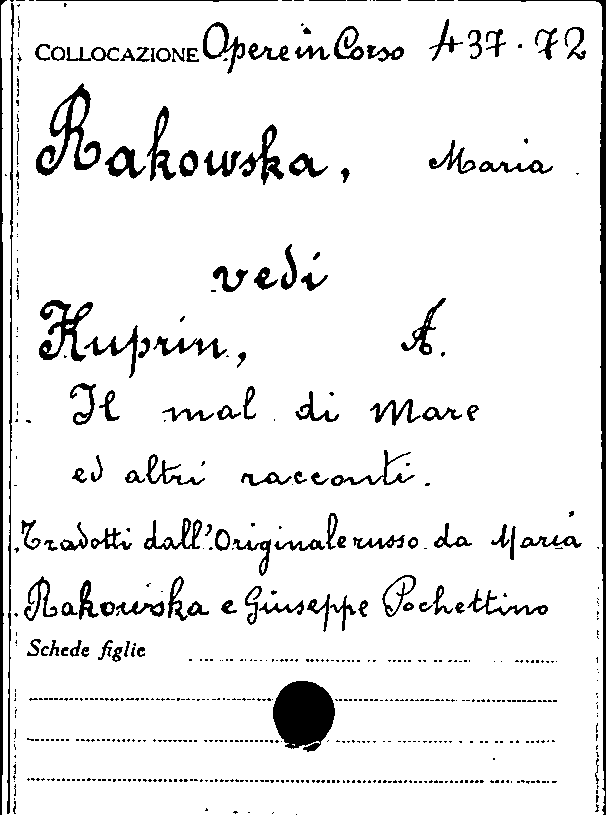 COLLOCAZIONE Opere in Corso 437.72
Rakowska, Maria
vedi
Kuprin, A.
Il mal di Mare
ed altri racconti.
Tradotti dall'Originale russo da Maria
Rakowska e Giuseppe Pochettino
Schede figlie